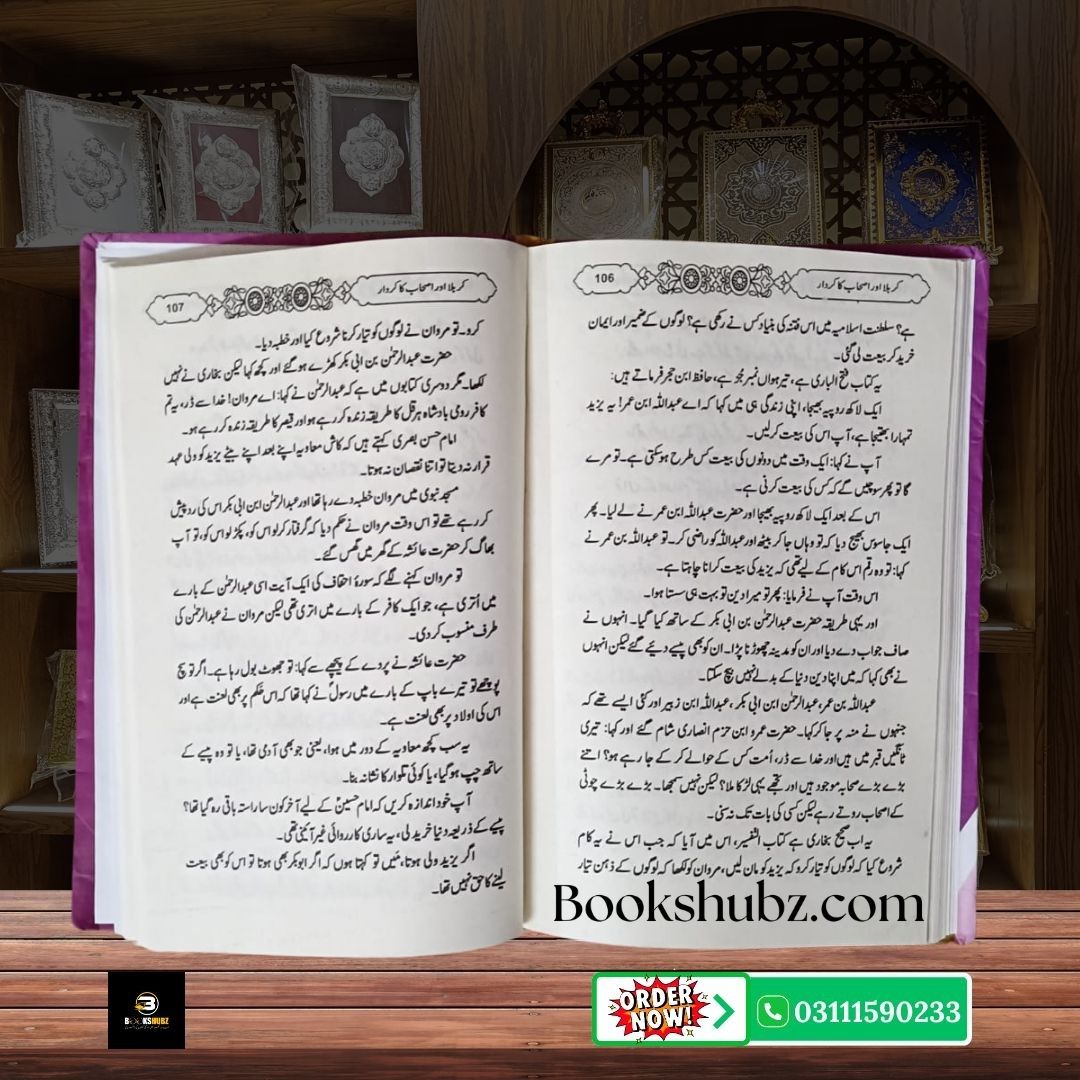 106
کربلا اور اصحاب کا کردار
ہے؟ سلطنت اسلامیہ میں اس فتنہ کی بنیاد کس نے رکھی ہے؟ لوگوں کے ضمیر اور ایمان
خرید کر بیعت لی گئی۔
یہ کتاب فتح الباری ہے، تیرہواں نمبر جز ہے، حافظ ابن حجر فرماتے ہیں:
ایک لاکھ روپیہ بھیجا، اپنی زندگی ہی میں کہا کہ اے عبداللہ ابن عمر! یہ یزید
تمہارا بھتیجا ہے، آپ اس کی بیعت کرلیں۔
آپ نے کہا: ایک وقت میں دونوں کی بیعت کس طرح ہوسکتی ہے۔ تو مرے
گا تو پھر سوچیں گے کہ کس کی بیعت کرنی ہے۔
اس کے بعد ایک لاکھ روپیہ بھیجا اور حضرت عبداللہ ابن عمر نے لے لیا۔ پھر
ایک جاسوس بھیج دیا کہ تو وہاں جا کر بیٹھ اور عبداللہ کو راضی کر۔ تو عبداللہ بن عمر نے
کہا: تو وہ رقم اس کام کے لیے تھی کہ یزید کی بیعت کرانا چاہتا ہے۔
اس وقت آپ نے فرمایا: پھر تو میرا دین تو بہت ہی سستا ہوا۔
اور یہی طریقہ حضرت عبدالرحمٰن بن ابی بکر کے ساتھ کیا گیا۔ انہوں نے
صاف جواب دے دیا اور ان کو مدینہ چھوڑنا پڑا۔ ان کو بھی پیسے دیئے گئے لیکن انہوں
نے بھی کہا کہ میں اپنا دین دنیا کے بدلے نہیں بیچ سکتا۔
عبداللہ بن عمر، عبدالرحمٰن ابن ابی بکر، عبداللہ ابن زبیر اور کئی ایسے تھے کہ
جنہوں نے منہ پر جا کر کہا۔ حضرت عمرو ابن حزم انصاری شام گئے اور کہا: تیری
ٹانگیں قبر میں ہیں اور خدا سے ڈر، اُمت کس کے حوالے کر کے جا رہے ہو؟ اتنے
بڑے بڑے صحابہ موجود ہیں اور تجھے یہی لڑکا ملا؟ لیکن نہیں سمجھا۔ بڑے بڑے چوٹی
کے اصحاب روتے رہے لیکن کسی کی بات تک نہ سنی۔
یہ اب صحیح بخاری ہے کتاب التفسیر، اس میں آیا کہ جب اس نے یہ کام
شروع کیا کہ لوگوں کو تیار کرو کہ یزید کو مان لیں، مروان کو لکھا کہ لوگوں کے ذہن تیار
107
کربلا اور اصحاب کا کردار
کرو۔ تو مروان نے لوگوں کو تیار کرنا شروع کیا اور خطبہ دیا۔
حضرت عبدالرحمٰن بن ابی بکر کھڑے ہو گئے اور کچھ کہا لیکن بخاری نے نہیں
لکھا۔ مگر دوسری کتابوں میں ہے کہ عبدالرحمٰن نے کہا: اے مروان! خدا سے ڈر، یہ تم
کافر رومی بادشاہ ہرقل کا طریقہ زندہ کر رہے ہو اور قیصر کا طریقہ زندہ کر رہے ہو۔
امام حسن بصری کہتے ہیں کہ کاش معاویہ اپنے بعد اپنے بیٹے یزید کو ولی عہد
قرار نہ دیتا تو اتنا نقصان نہ ہوتا۔
مسجد نبوی میں مروان خطبہ دے رہا تھا اور عبدالرحمٰن ابن ابی بکر اس کی رد پیش
کر رہے تھے تو اس وقت مروان نے حکم دیا کہ گرفتار کر لو اس کو، پکڑ لو اس کو، تو آپ
بھاگ کر حضرت عائشہ کے گھر میں گھس گئے۔
تو مروان کہنے لگے کہ سورۂ احقاف کی ایک آیت اسی عبدالرحمٰن کے بارے
میں اُتری ہے، جو ایک کافر کے بارے میں اتری تھی لیکن مروان نے عبدالرحمٰن کی
طرف منسوب کر دی۔
حضرت عائشہ نے پردے کے پیچھے سے کہا: تو جھوٹ بول رہا ہے۔ اگر تو سچ
پوچھے تو تیرے باپ کے بارے میں رسولؐ نے کہا تھا کہ اس حکم پر بھی لعنت ہے اور
اس کی اولاد پر بھی لعنت ہے۔
یہ سب کچھ معاویہ کے دور میں ہوا، یعنی جو بھی آدمی تھا، یا تو وہ پیسے کے
ساتھ چپ ہو گیا، یا کوئی تلوار کا نشانہ بنا۔
آپ خود اندازہ کریں کہ امام حسینؑ کے لیے آخر کون سا راستہ باقی رہ گیا تھا؟
پیسے کے ذریعہ دنیا خرید لی، یہ ساری کارروائی غیر آئینی تھی۔
اگر یزید ولی ہوتا، مَیں تو کہتا ہوں کہ اگر ابوبکر بھی ہوتا تو اس کو بھی بیعت
لینے کا حق نہیں تھا۔
Bookshubz.com
BOOKSHUBZ
ORDER NOW!
03111590233